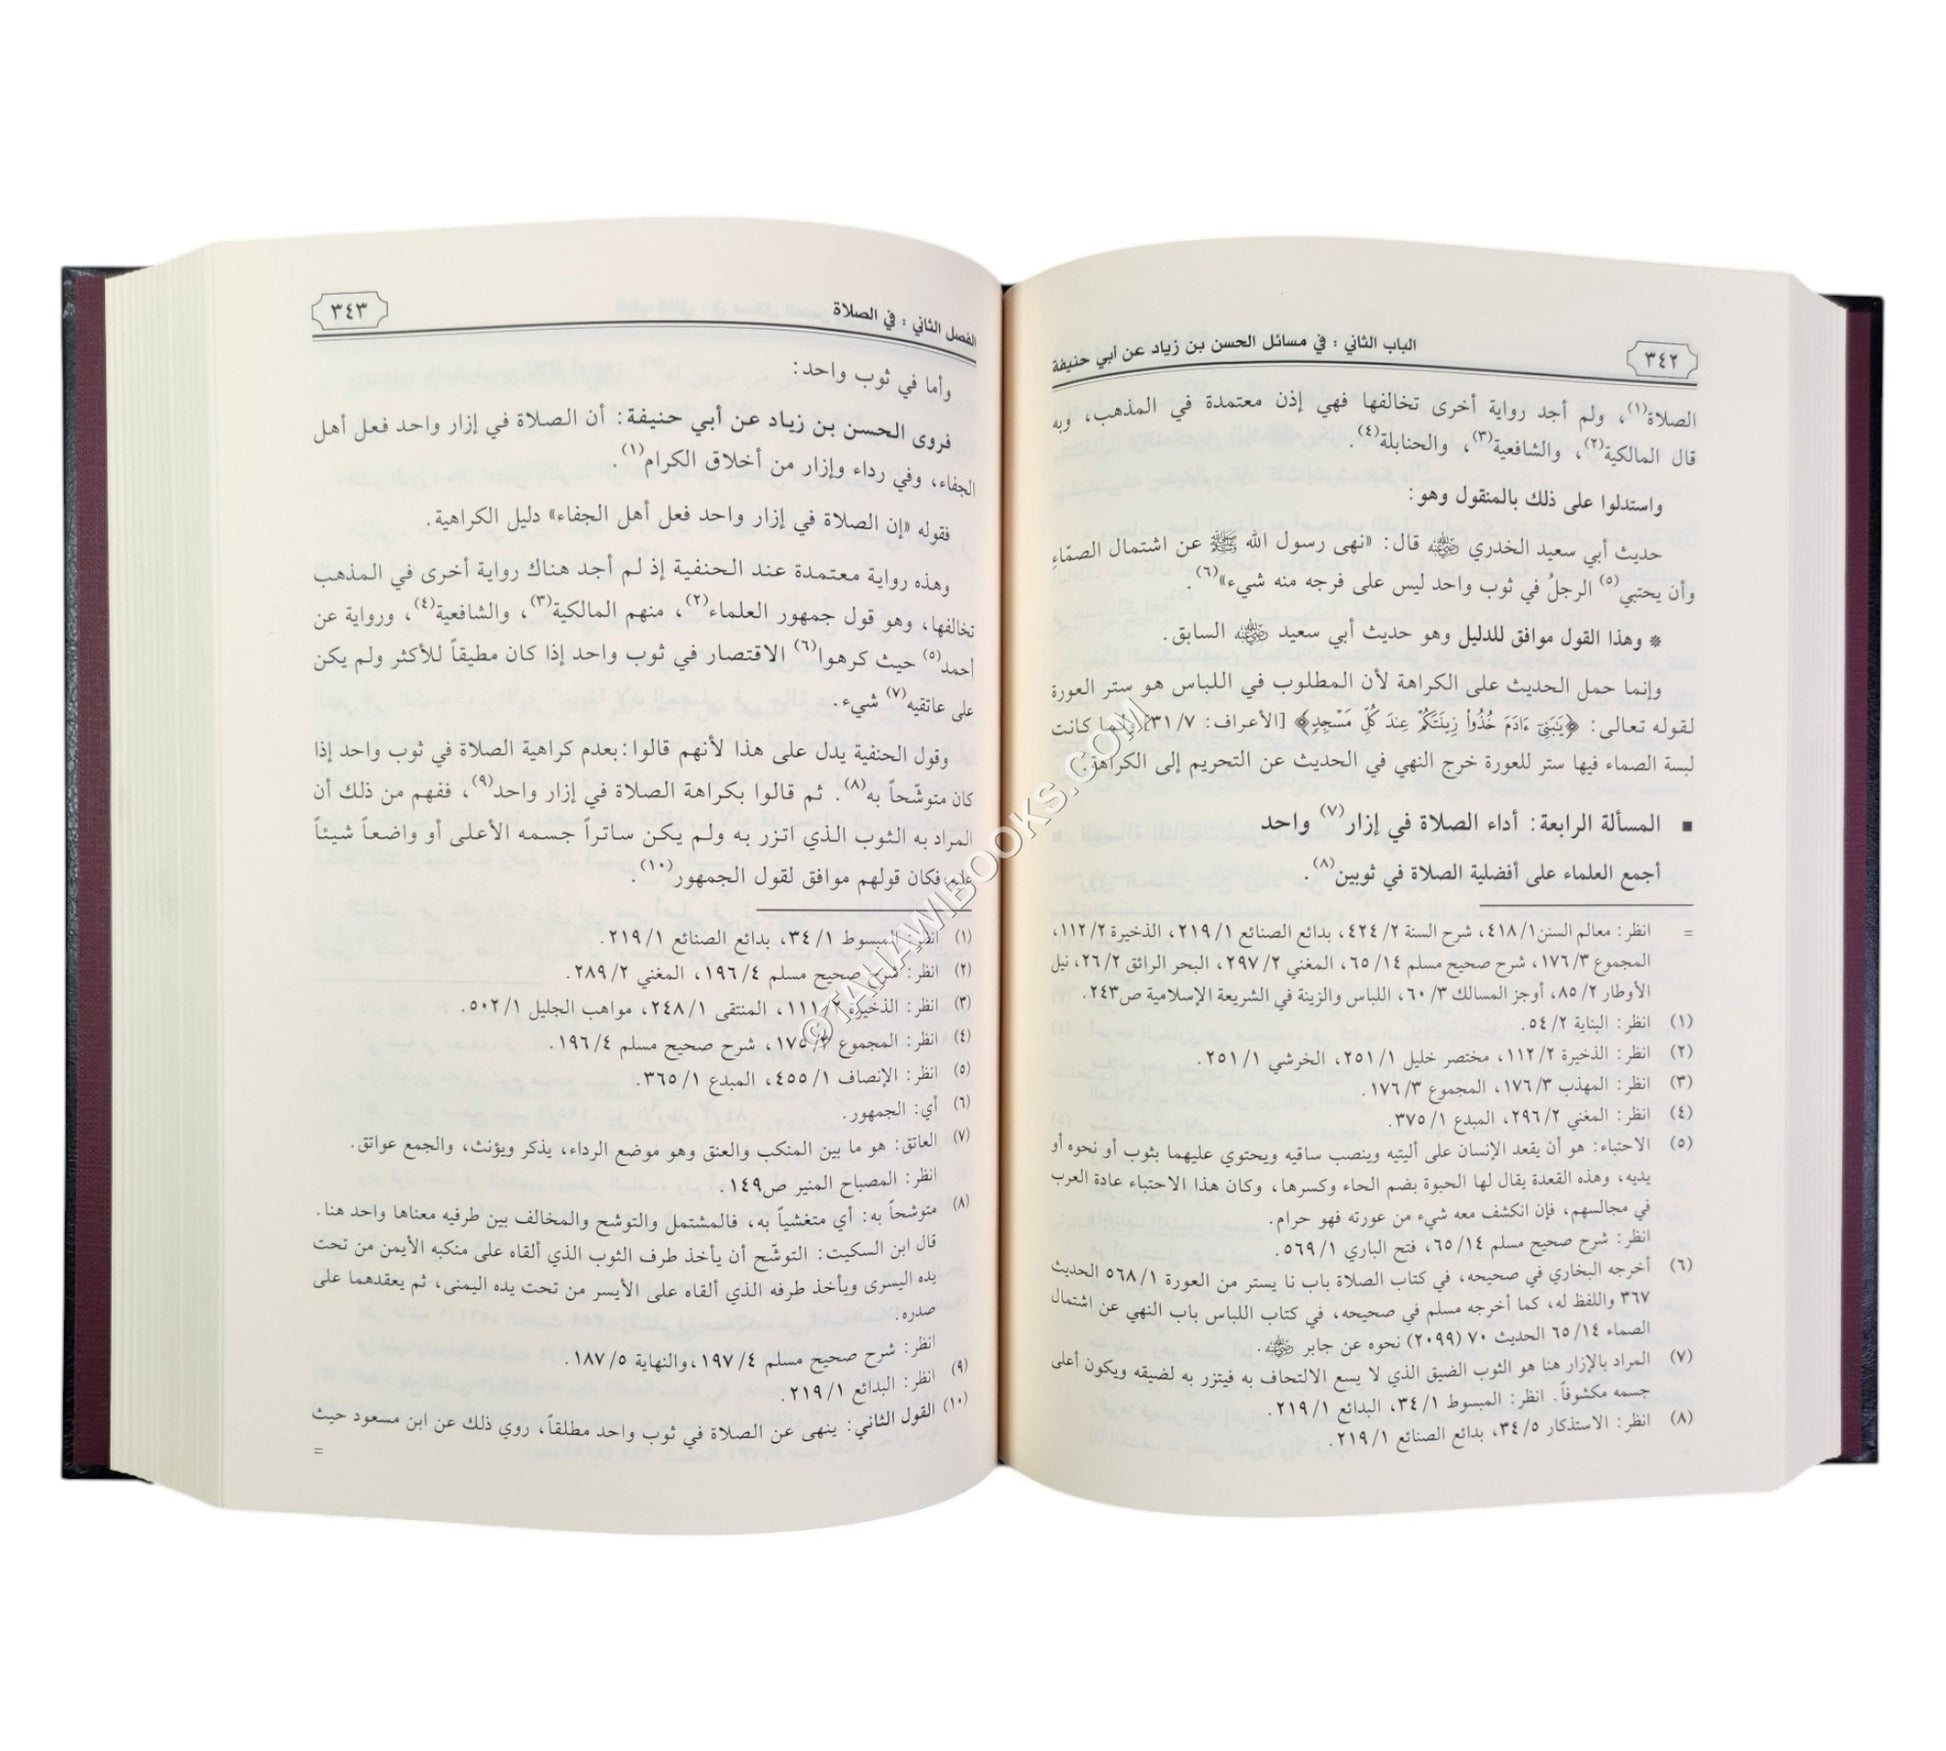 ٣٤٢
الباب الثاني : في مسائل الحسن بن زياد عن أبي حنيفة
الصلاة(١)، ولم أجد رواية أخرى تخالفها فهي إذن معتمدة في المذهب، وبه
قال المالكية(٢)، والشافعية(٣)، والحنابلة(٤).
واستدلوا على ذلك بالمنقول وهو:
حديث أبي سعيد الخدري ﵁ قال: «نهى رسول الله ﷺ عن اشتمال الصمّاءِ
وأن يحتبي(٥) الرجلُ في ثوب واحد ليس على فرجه منه شيء»(٦).
* وهذا القول موافق للدليل وهو حديث أبي سعيد ﵁ السابق.
وإنما حمل الحديث على الكراهة لأن المطلوب في اللباس هو ستر العورة
لقوله تعالى: ﴿يَٰبَنِىٓ ءَادَمَ خُذُوا۟ زِينَتَكُمْ عِندَ كُلِّ مَسْجِدٍ﴾ [الأعراف: ٣١/٧] ولما كانت
لبسة الصماء فيها ستر للعورة خرج النهي في الحديث عن التحريم إلى الكراهة.
■ المسألة الرابعة: أداء الصلاة في إزار(٧) واحد
أجمع العلماء على أفضلية الصلاة في ثوبين(٨).
= انظر: معالم السنن ٤١٨/١، شرح السنة ٤٢٤/٢، بدائع الصنائع ٢١٩/١، الذخيرة ١١٢/٢،
المجموع ١٧٦/٣، شرح صحيح مسلم ٦٥/١٤، المغني ٢٩٧/٢، البحر الرائق ٢٦/٢، نيل
الأوطار ٨٥/٢، أوجز المسالك ٦٠/٣، اللباس والزينة في الشريعة الإسلامية ص٢٤٣.
(١) انظر: البناية ٥٤/٢.
(٢) انظر: الذخيرة ١١٢/٢، مختصر خليل ٢٥١/١، الخرشي ٢٥١/١.
(٣) انظر: المهذب ١٧٦/٣، المجموع ١٧٦/٣.
(٤) انظر: المغني ٢٩٦/٢، المبدع ٣٧٥/١.
(٥) الاحتباء: هو أن يقعد الإنسان على أليتيه وينصب ساقيه ويحتوي عليهما بثوب أو نحوه أو
يديه، وهذه القعدة يقال لها الحبوة بضم الحاء وكسرها، وكان هذا الاحتباء عادة العرب
في مجالسهم، فإن انكشف معه شيء من عورته فهو حرام.
انظر: شرح صحيح مسلم ٦٥/١٤، فتح الباري ٥٦٩/١.
(٦) أخرجه البخاري في صحيحه، في كتاب الصلاة باب نا يستر من العورة ٥٦٨/١ الحديث
٣٦٧ واللفظ له، كما أخرجه مسلم في صحيحه، في كتاب اللباس باب النهي عن اشتمال
الصماء ٦٥/١٤ الحديث ٧٠ (٢٠٩٩) نحوه عن جابر ﵁.
(٧) المراد بالإزار هنا هو الثوب الضيق الذي لا يسع الالتحاف به فيتزر به لضيقه ويكون أعلى
جسمه مكشوفاً. انظر: المبسوط ٣٤/١، البدائع ٢١٩/١.
(٨) انظر: الاستذكار ٣٤/٥، بدائع الصنائع ٢١٩/١.
الفصل الثاني : في الصلاة
٣٤٣
وأما في ثوب واحد:
فروى الحسن بن زياد عن أبي حنيفة: أن الصلاة في إزار واحد فعل أهل
الجفاء، وفي رداء وإزار من أخلاق الكرام(١).
فقوله «إن الصلاة في إزار واحد فعل أهل الجفاء» دليل الكراهية.
وهذه رواية معتمدة عند الحنفية إذ لم أجد هناك رواية أخرى في المذهب
تخالفها، وهو قول جمهور العلماء(٢)، منهم المالكية(٣)، والشافعية(٤)، ورواية عن
أحمد(٥) حيث كرهوا(٦) الاقتصار في ثوب واحد إذا كان مطيقاً للأكثر ولم يكن
على عاتقيه(٧) شيء.
وقول الحنفية يدل على هذا لأنهم قالوا: بعدم كراهية الصلاة في ثوب واحد إذا
كان متوشّحاً به(٨). ثم قالوا بكراهة الصلاة في إزار واحد(٩)، ففهم من ذلك أن
المراد به الثوب الذي اتزر به ولم يكن ساتراً جسمه الأعلى أو واضعاً شيئاً
عليه فكان قولهم موافق لقول الجمهور(١٠).
(١) انظر: المبسوط ٣٤/١، بدائع الصنائع ٢١٩/١.
(٢) انظر: شرح صحيح مسلم ١٩٦/٤، المغني ٢٨٩/٢.
(٣) انظر: الذخيرة ١١١/٢، المنتقى ٢٤٨/١، مواهب الجليل ٥٠٢/١.
(٤) انظر: المجموع ١٧٥/٣، شرح صحيح مسلم ١٩٦/٤.
(٥) انظر: الإنصاف ٤٥٥/١، المبدع ٣٦٥/١.
(٦) أي: الجمهور.
(٧) العاتق: هو ما بين المنكب والعنق وهو موضع الرداء، يذكر ويؤنث، والجمع عواتق.
انظر: المصباح المنير ص١٤٩.
(٨) متوشحاً به: أي متغشياً به، فالمشتمل والتوشح والمخالف بين طرفيه معناها واحد هنا.
قال ابن السكيت: التوشّح أن يأخذ طرف الثوب الذي ألقاه على منكبه الأيمن من تحت
يده اليسرى ويأخذ طرفه الذي ألقاه على الأيسر من تحت يده اليمنى، ثم يعقدهما على
صدره.
انظر: شرح صحيح مسلم ١٩٧/٤، والنهاية ١٨٧/٥.
(٩) انظر: البدائع ٢١٩/١.
(١٠) القول الثاني: ينهى عن الصلاة في ثوب واحد مطلقاً، روي ذلك عن ابن مسعود حيث
=
©TAHAWIBOOKS.COM